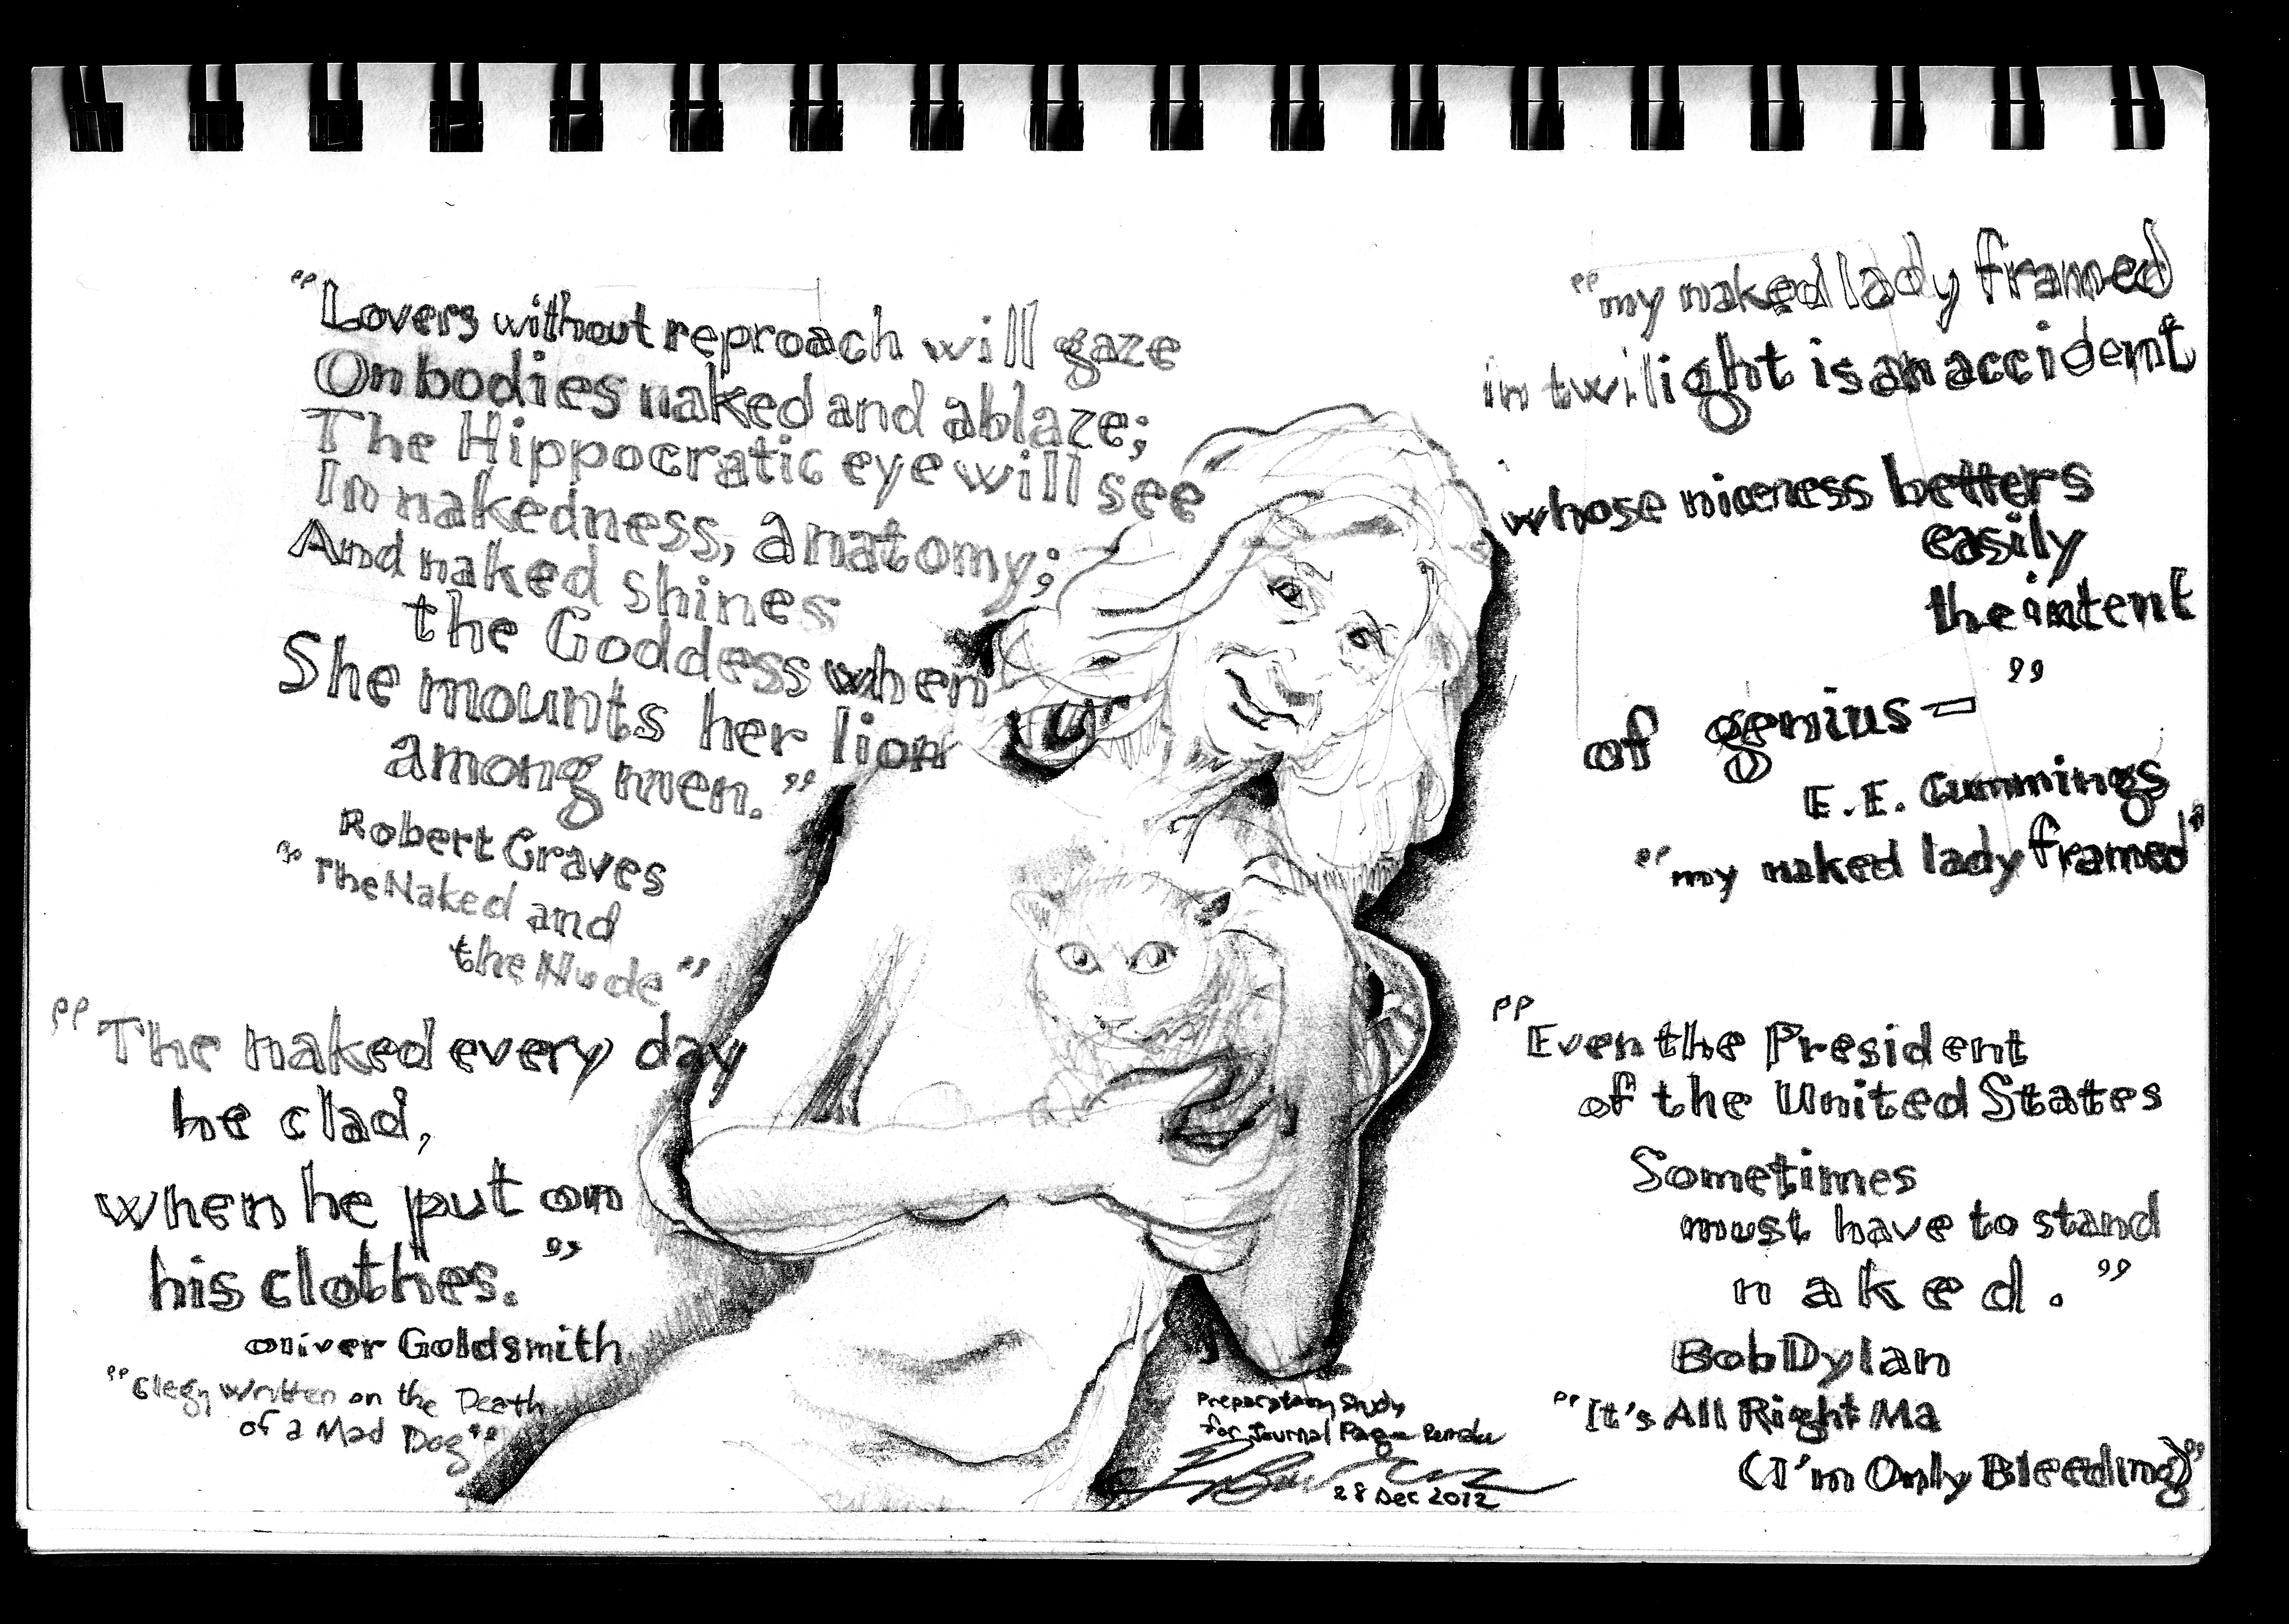 "Lovers without reproach will gaze
On bodies naked and ablaze;
The Hippocratic eye will see
In nakedness, anatomy;
And naked shines
the Goddess when
She mounts her lion
among men."
Robert Graves
"The Naked and
the Nude"
"The naked every day
he clad,
when he put on
his clothes."
Oliver Goldsmith
"Elegy Written on the Death
of a Mad Dog"
"my naked lady framed
in twilight is an accident
whose niceness betters
easily
the intent
of genius—"
E.E. Cummings
"my naked lady framed"
"Even the President
of the United States
Sometimes
must have to stand
naked."
Bob Dylan
"It's All Right Ma
(I'm Only Bleeding)"
Preparatory Study
for Journal Page Remake
28 Dec 2012